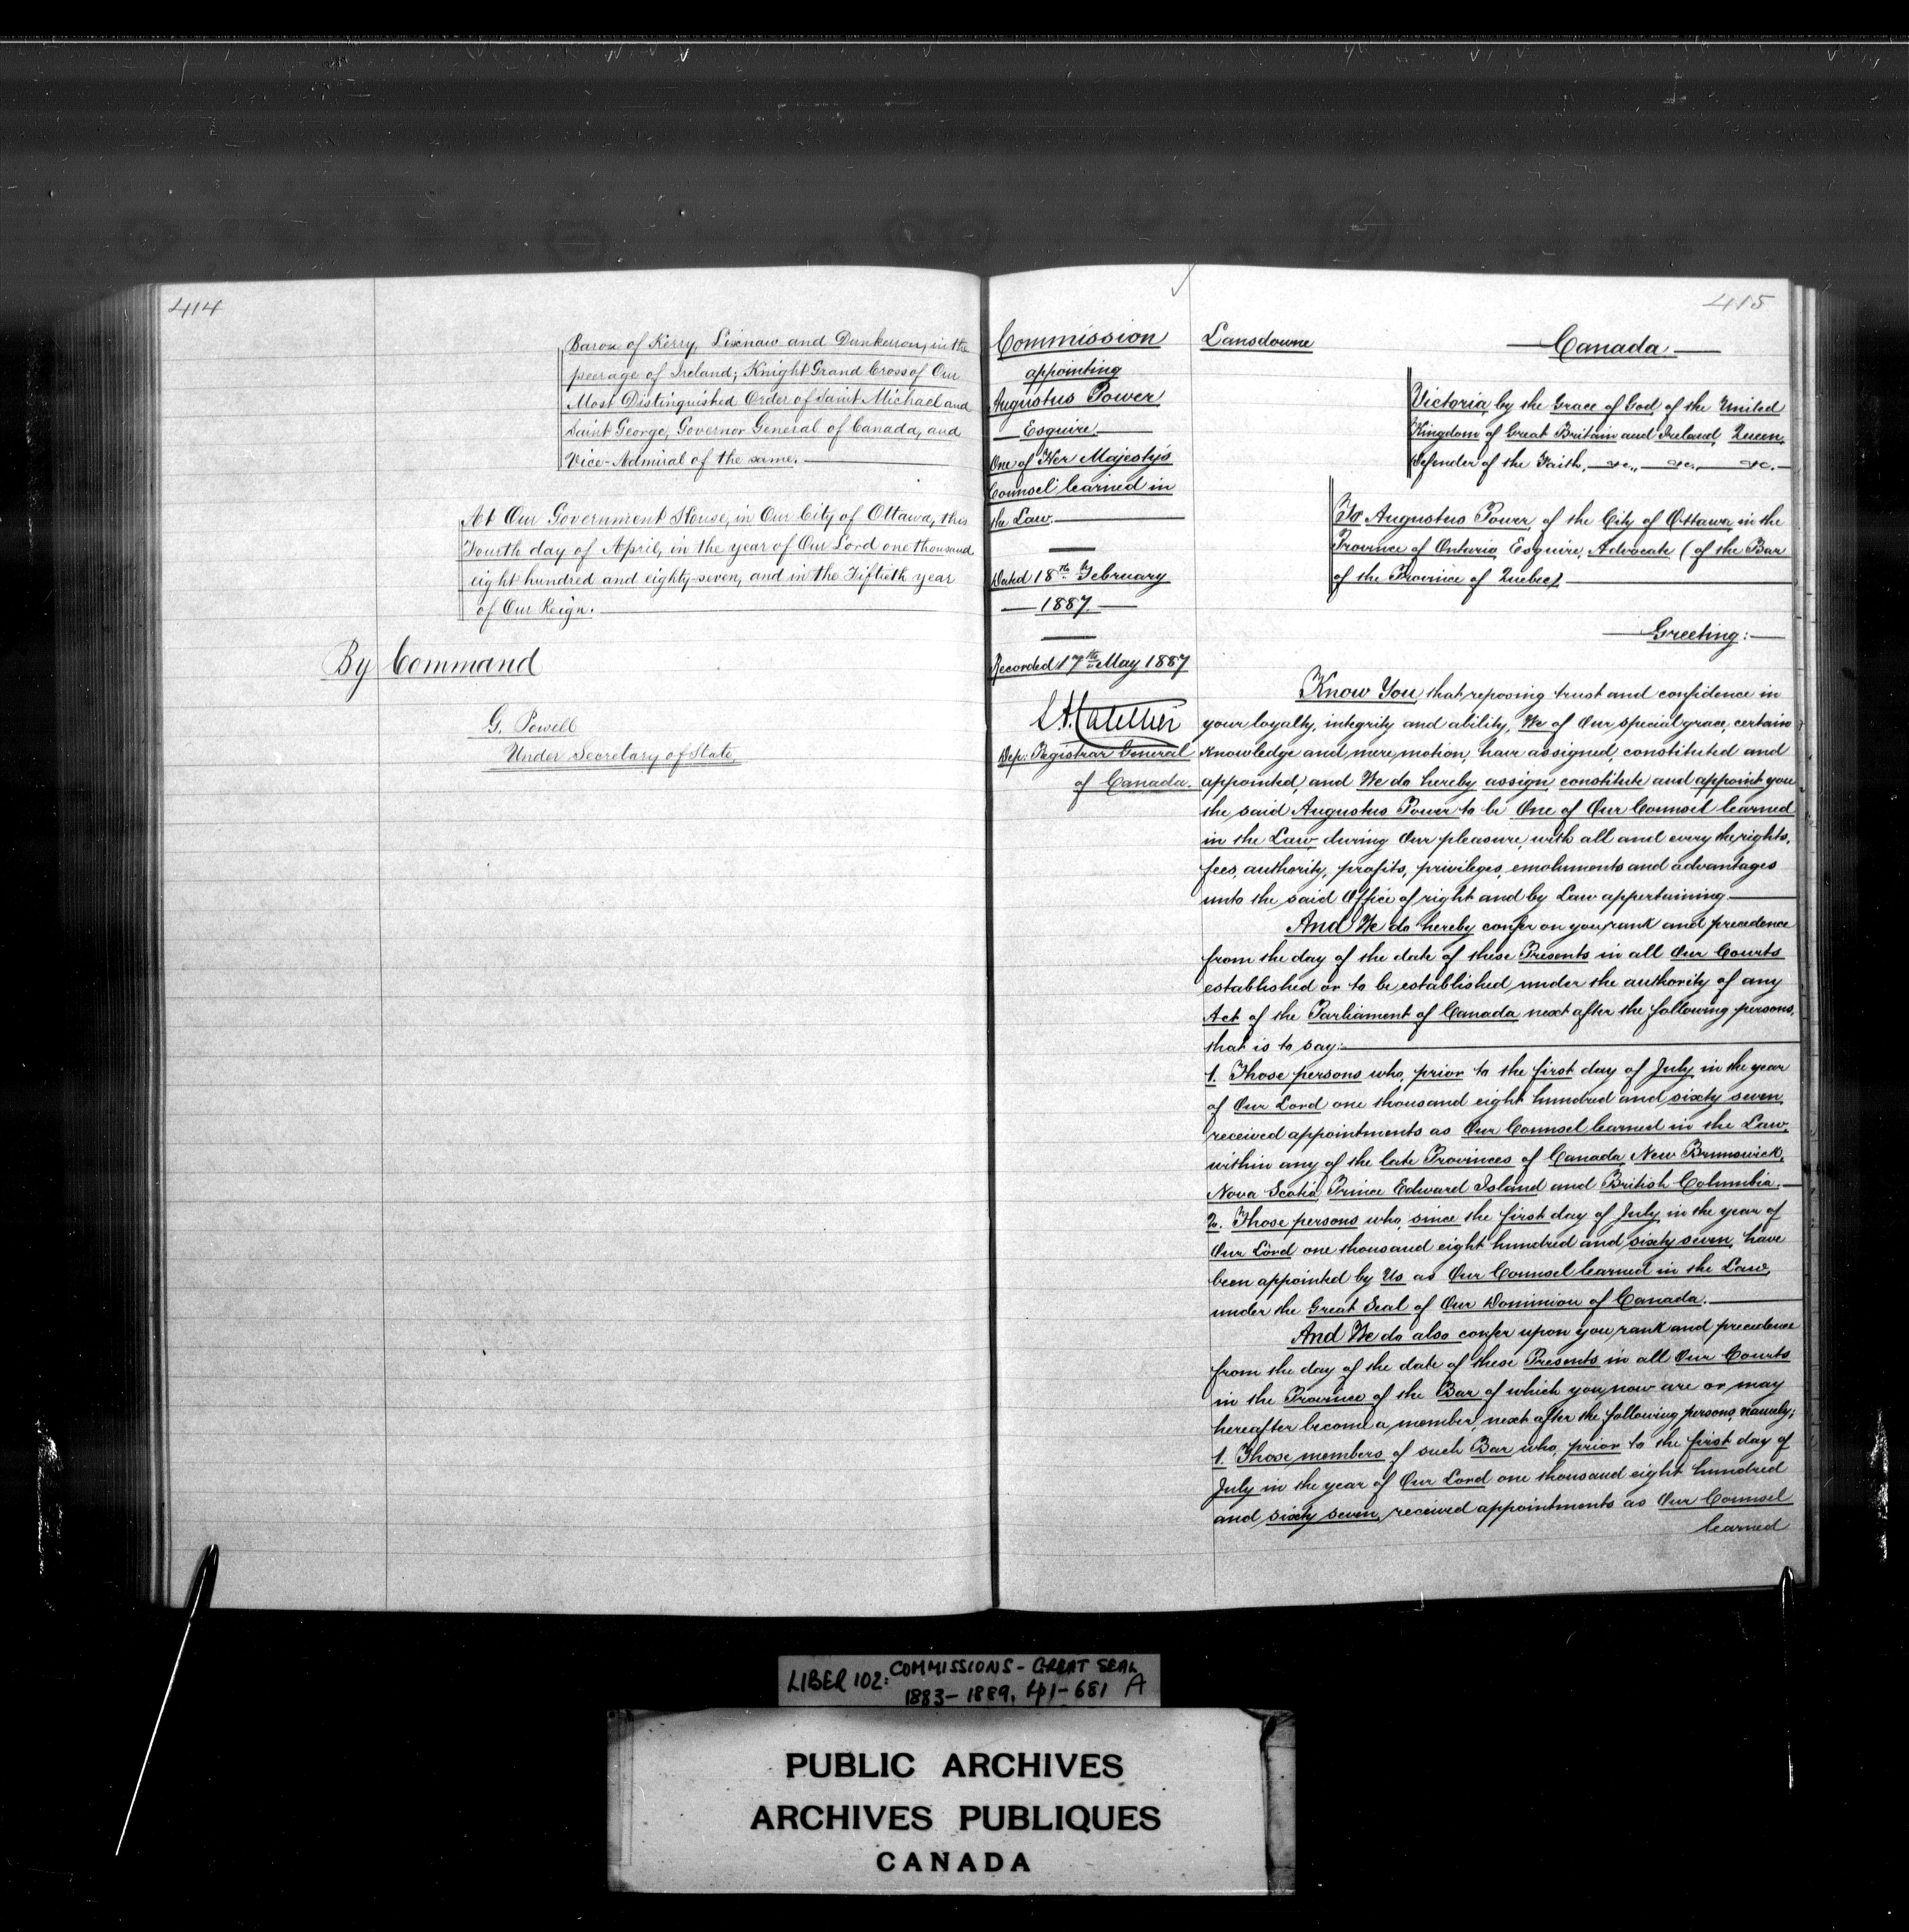 414
Baron of Kerry, Lixnaw and Dunkerron, in the
peerage of Ireland; Knight Grand Cross of Our
Most Distinguished Order of Saint Michael and
Saint George, Governor General of Canada, and
Vice-Admiral of the same.
At Our Government House, in Our City of Ottawa, this
Fourth day of April, in the year of Our Lord one thousand
eight hundred and eighty-seven, and in the Fiftieth year
of Our Reign.
By Command
G. Powell
Under Secretary of State.
415
Commission
appointing
Augustus Power
Esquire,
One of Her Majesty's
Counsel learned in
the Law.
Dated 18th February
1887.
Recorded 17th May 1887
Dep: Registrar General
of Canada.
Lansdowne
Canada
Victoria, by the Grace of God, of the United
Kingdom of Great Britain and Ireland, Queen,
Defender of the Faith, &c., &c., &c.
To Augustus Power, of the City of Ottawa in the
Province of Ontario, Esquire, Advocate (of the Bar
of the Province of Quebec)
Greeting:
Know You, that reposing trust and confidence in
your loyalty, integrity and ability, We of Our special grace, certain
knowledge and mere motion, have assigned, constituted and
appointed, and We do hereby assign, constitute and appoint you
the said Augustus Power to be One of Our Counsel learned
in the Law during Our pleasure, with all and every the rights,
fees, authority, profits, privileges, emoluments and advantages
unto the said Office of right and by Law appertaining.
And We do hereby confer on you, rank and precedence
from the day of the date of these Presents in all Our Courts
established or to be established under the authority of any
Act of the Parliament of Canada next after the following persons,
that is to say:
1. Those persons who, prior to the first day of July in the year
of Our Lord one thousand eight hundred and sixty seven,
received appointments as Our Counsel learned in the Law,
within any of the late Provinces of Canada, New Brunswick,
Nova Scotia, Prince Edward Island and British Columbia.
2. Those persons who, since the first day of July in the year of
Our Lord one thousand eight hundred and sixty seven, have
been appointed by Us as Our Counsel learned in the Law,
under the Great Seal of Our Dominion of Canada.
And We do also confer upon you, rank and precedence
from the day of the date of these Presents in all Our Courts
in the Province of the Bar of which you now are or may
hereafter become a member, next after the following persons, namely;
1. Those members of such Bar who, prior to the first day of
July in the year of Our Lord one thousand eight hundred
and sixty seven, received appointments as Our Counsel
learned
LIBER 102: COMMISSIONS - GREAT SEAL
1883-1889, pp 1-681 A
PUBLIC ARCHIVES
ARCHIVES PUBLIQUES
CANADA